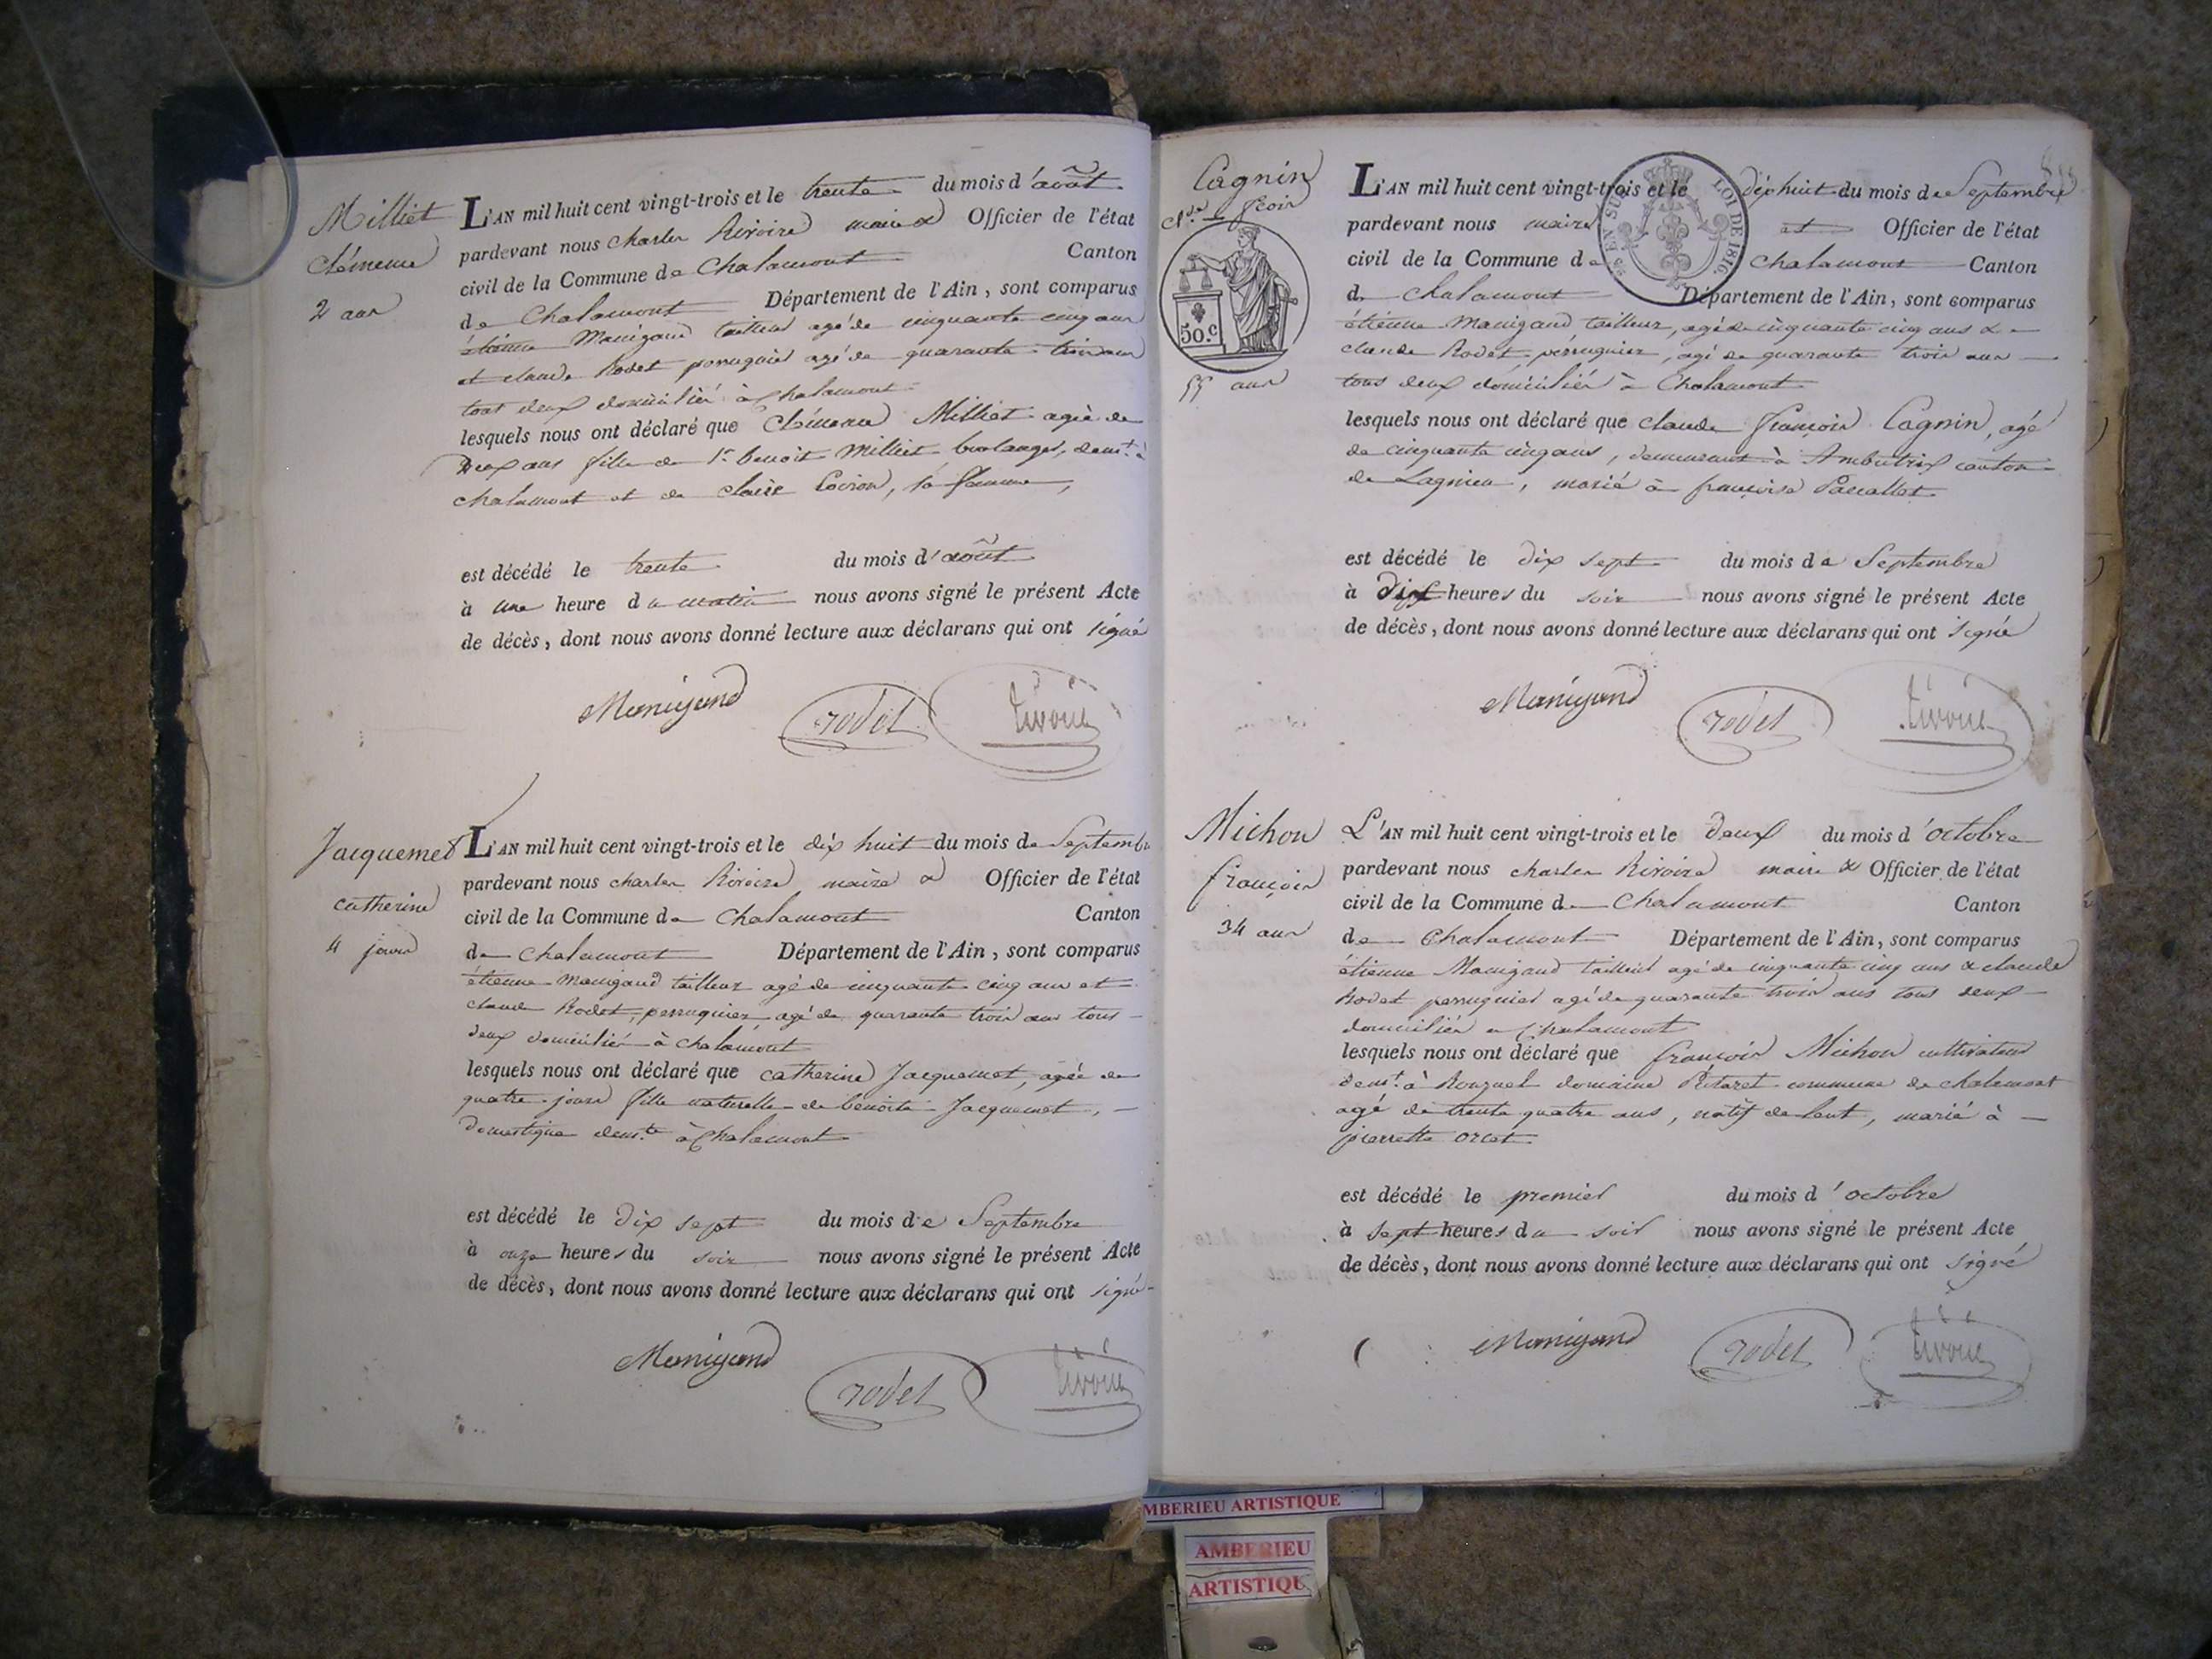 Milliet
Clémence
2 ans
L'AN mil huit cent vingt-trois et le trente du mois d'août
pardevant nous charles Rivoire maire & Officier de l'état
civil de la Commune de Chalamont Canton
de Chalamont Département de l'Ain, sont comparus
étienne Manigand tailleur agé de cinquante cinq ans
et claude Rodet perruquier agé de quarante trois ans
tout deux domicilié à Chalamont
lesquels nous ont déclaré que Clémence Milliet agée de
deux ans fille de Sr benoit Milliet boulanger, demt. à
chalamont et de claire, sa femme,
est décédé le trente du mois d'août
à une heure du matin nous avons signé le présent Acte
de décès, dont nous avons donné lecture aux déclarans qui ont signé
Manigand rodet rivoire
Jacquemet
catherine
4 jours
L'AN mil huit cent vingt-trois et le dix huit du mois de Septembre
pardevant nous charles Rivoire maire & Officier de l'état
civil de la Commune de Chalamont Canton
de Chalamont Département de l'Ain, sont comparus
étienne Manigand tailleur agé de cinquante cinq ans et
claude Rodet, perruquier, agé de quarante trois ans tous
deux domicilié à Chalamont
lesquels nous ont déclaré que catherine Jacquemet, agée de
quatre jours fille naturelle de benoite Jacquemet,
domestique demte. à Chalamont
est décédé le dix sept du mois de Septembre
à onze heures du soir nous avons signé le présent Acte
de décès, dont nous avons donné lecture aux déclarans qui ont signé
Manigand rodet rivoire
Cagnin
cl.de fcois
50.c
55 ans
EN SUS LOI DE 1816.
L'AN mil huit cent vingt-trois et le dix huit du mois de Septembre
pardevant nous maire et Officier de l'état
civil de la Commune de Chalamont Canton
de Chalamont Département de l'Ain, sont comparus
étienne Manigand tailleur, agé de cinquante cinq ans &
claude Rodet, perruquier, agé de quarante trois ans
tous deux domiciliés à Chalamont
lesquels nous ont déclaré que claude françois Cagnin, agé
de cinquante cinq ans, demeurant à Ambutrix canton
de Lagnieu, marié à françoise
est décédé le dix sept du mois de Septembre
à dix heures du soir nous avons signé le présent Acte
de décès, dont nous avons donné lecture aux déclarans qui ont signé
Manigand rodet rivoire
Michon
françois
34 ans
L'AN mil huit cent vingt-trois et le deux du mois d'octobre
pardevant nous charles Rivoire maire & Officier de l'état
civil de la Commune de Chalamont Canton
de Chalamont Département de l'Ain, sont comparus
étienne Manigand tailleur agé de cinquante cinq ans & claude
Rodet perruquier agé de quarante trois ans tous deux
domiciliés à Chalamont
lesquels nous ont déclaré que françois Michon cultivateur
demt. à domaine commune de chalamont
agé de trente quatre ans, natif de lent, marié à
pierrette orcet
est décédé le premier du mois d'octobre
à sept heures du soir nous avons signé le présent Acte
de décès, dont nous avons donné lecture aux déclarans qui ont signé
Manigand rodet rivoire
MBERIEU ARTISTIQUE
AMBERIEU
ARTISTIQU